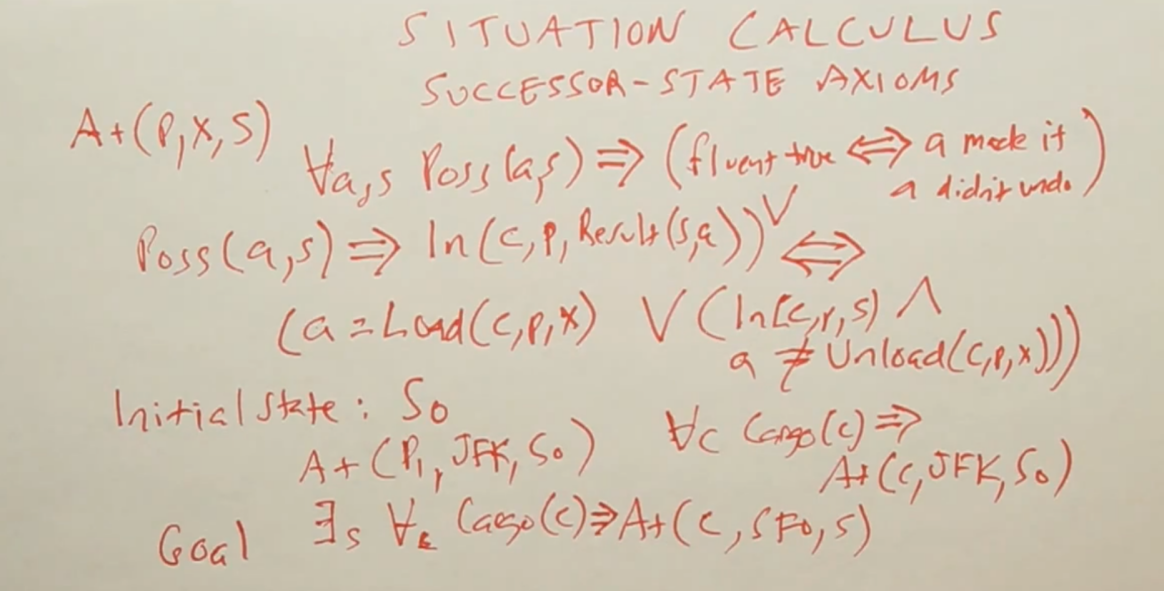 SITUATION CALCULUS
SUCCESSOR-STATE AXIOMS
At(P,X,S)
∀a,s Poss(a,s) ⇒ (fluent true ⇔ a made it ∨ a didn't undo)
Poss(a,s) ⇒ In(C,P,Result(S,a)) ⇔
(a=Load(C,P,X) ∨ (In(C,P,S) ∧
a ≠ Unload(C,P,X)))
Initial State: S₀
At(P₁,JFK,S₀) ∀c Cargo(c) ⇒
At(C,JFK,S₀)
Goal ∃s ∀c Cargo(c) ⇒ At(C,SFO,S)